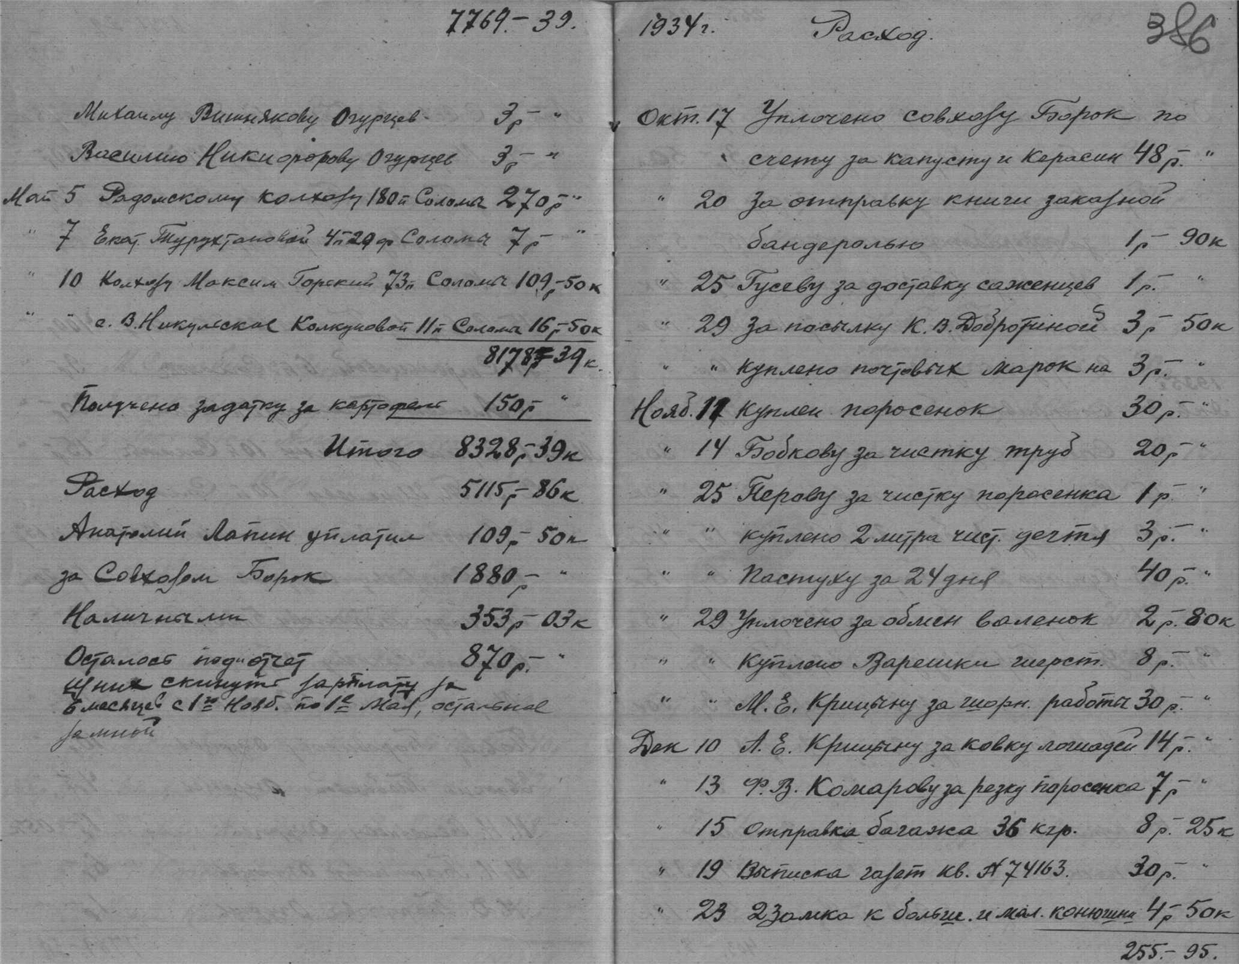 7769.- 39.
Михаилу Вишнякову Огурцев 3р- "
Василию Никифорову Огурцев 3р- "
Май 5 Радомскому колхозу 180п Соломы 270р- "
" 7 Екат. 4п 29ф Соломы 7р- "
" 10 Колхозу Максим Горский 73п Соломы 109р-50к
" " с. В. Никульское Колкуновой 11п Соломы 16р-50к
8178р-39к.
Получено задатку за картофель 150р- "
Итого 8328р-39к
Расход 5115р-86к
Анатолий Лапин уплатил 109р-50к
за Совхозом Борок 1880р- "
Наличными 353р-03к
Осталось подотчет 870р.- "
Из них скинуть зарплату за
6 месяцев с 1го Нояб. по 1е Мая, остальное
за мной
1934г. Расход. 386
Окт. 17 Уплочено совхозу Борок по
счету за капусту и Керасин 48р- "
" 20 За отправку книги заказной
бандеролью 1р- 90к
" 25 Гусеву за доставку саженцев 1р- "
" 29 За посылку К. В. Добротиной 3р- 50к
" " Куплено почтовых марок на 3р- "
Нояб. 11 Куплен поросенок 30р- "
" 14 Бобкову за чистку труб 20р- "
" 25 Перову за чистку поросенка 1р- "
" " куплено 2 литра чист. дегтя 3р- "
" " Пастуху за 24 дня 40р- "
" 29 Уплочено за обмен валенок 2р- 80к
" " Куплено Варешки шерст. 8р- "
" " М. Е. Крицыну за шорн. работы 30р- "
Дек 10 А. Е. Крицыну за ковку лошадей 14р- "
" 13 Ф. В. Комарову за резку поросенка 7р- "
" 15 Отправка багажа 36 кгр. 8р- 25к
" 19 Выписка газет кв. № 74163. 30р- "
" 23 2 Замка к больш. и мал. конюшни 4р- 50к
255.- 95.